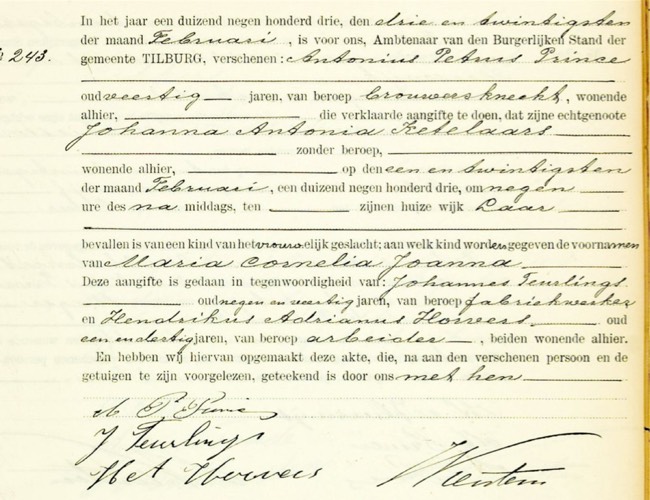 In het jaar een duizend negen honderd drie, den drie en twintigsten
der maand Februari, is voor ons, Ambtenaar van den Burgerlijken Stand der
243.
gemeente TILBURG, verschenen: Antonius Petrus Prince
oud veertig jaren, van beroep brouwersknecht, wonende
alhier, die verklaarde aangifte te doen, dat zijne echtgenoote
Johanna Antonia Ketelaars
zonder beroep,
wonende alhier, op den een en twintigsten
der maand Februari, een duizend negen honderd drie, om negen
ure des na middags, ten zijnen huize wijk Laar
bevallen is van een kind van het vrouwelijk geslacht; aan welk kind worden gegeven de voornamen
van Maria Cornelia Joanna
Deze aangifte is gedaan in tegenwoordigheid van: Johannes Teurlings
oud negen en veertig jaren, van beroep fabriekwerker
en Hendrikus Adrianus Hoevers oud
een en dertig jaren, van beroep arbeider, beiden wonende alhier.
En hebben wij hiervan opgemaakt deze akte, die, na aan den verschenen persoon en de
getuigen te zijn voorgelezen, geteekend is door ons met hen
A P. Prince
J Teurlings
H A Hoevers